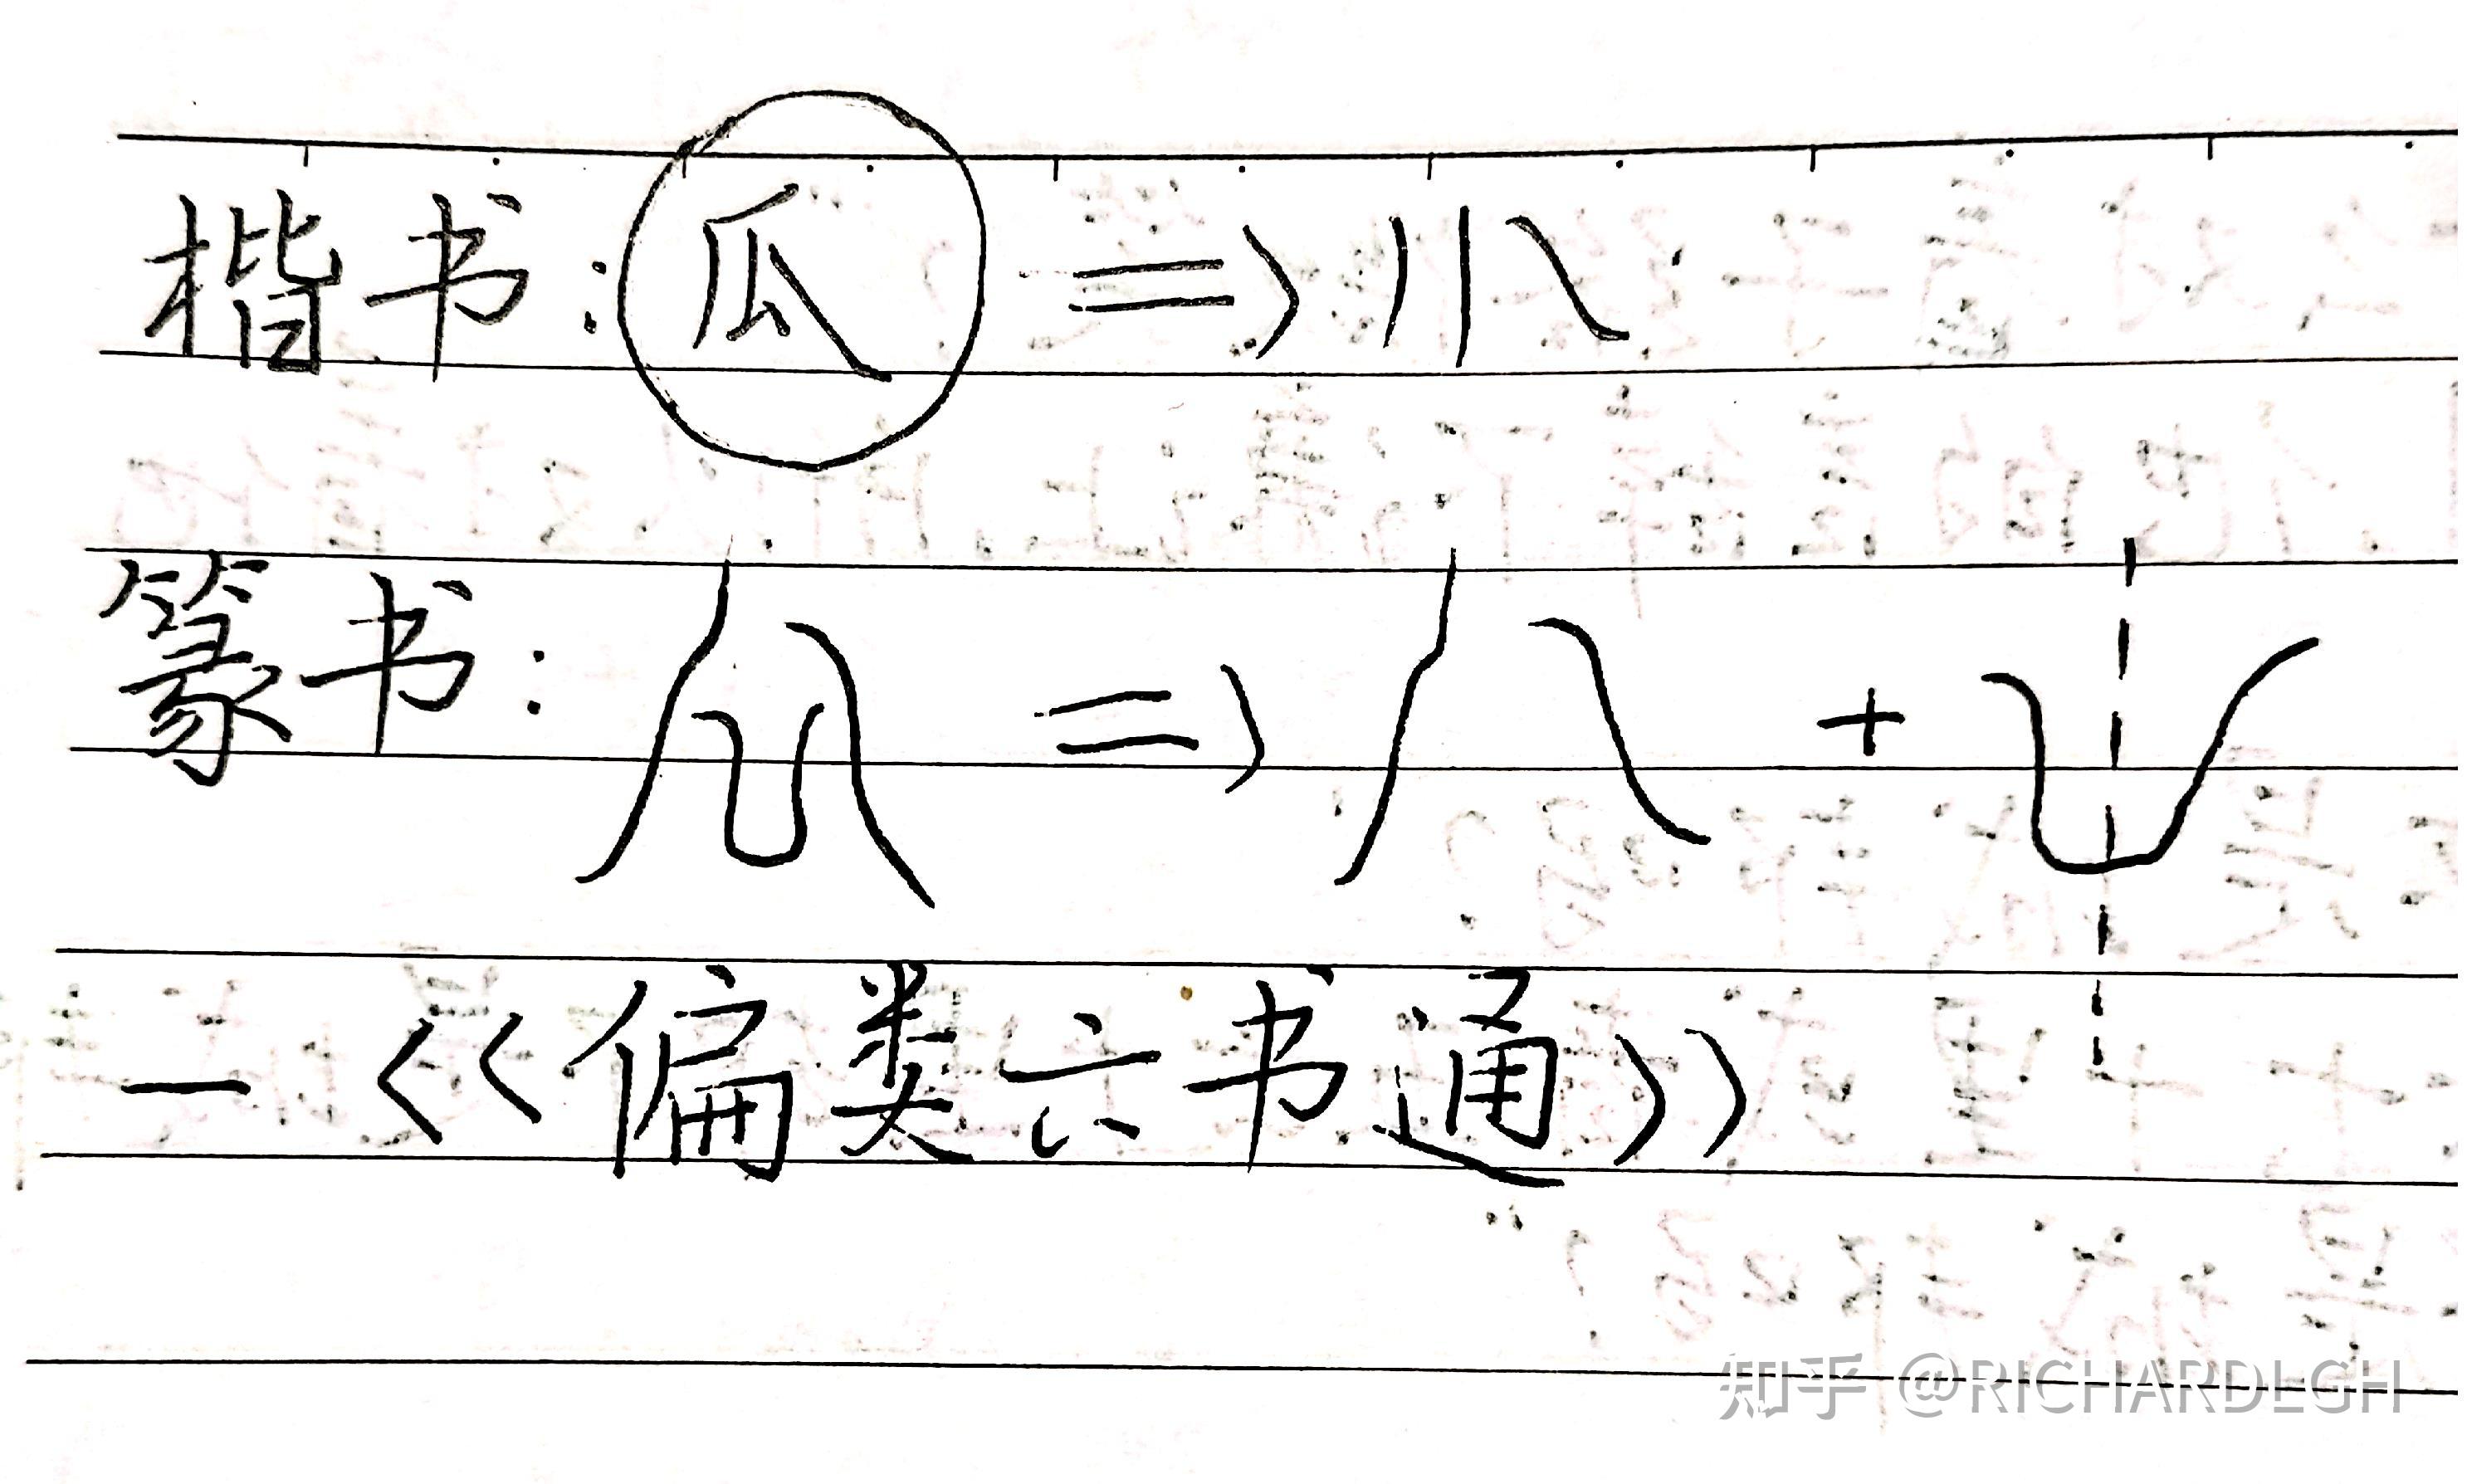 楷书:瓜 => 丿丨㇏
篆书: => +
— <<偏类六书通>>
知乎 @RICHARDLGH